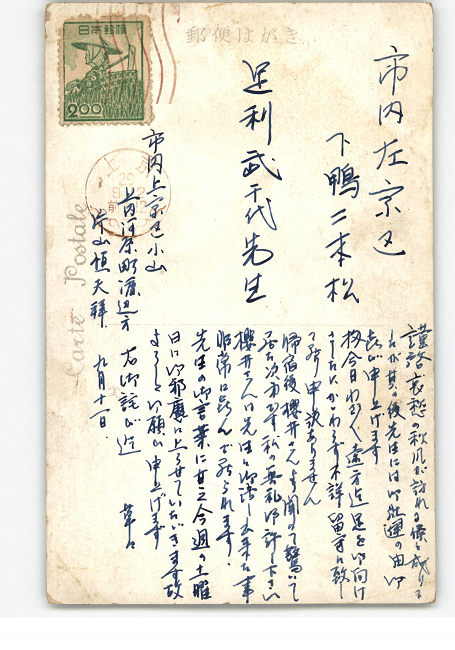 郵便はがき
日本郵便
2.00
Carte Postale
市内左京区
下鴨二本松
足利武千代先生
市内上京区小山
上内河原町渡辺方
片山恒夫拝
九月十一日
謹啓 哀愁の秋風が訪れる候と成りま
したが其の後先生には御壮健の由御
喜び申上げます
扨今日わざ〱遠方迄足を御向け
下さいたにかゝわらず不詳留守に致し
て誠に申訳ありません
帰宿後櫻井さんより聞いて驚いて
居る次第です 私の無礼御許し下さい
櫻井さんは先生と御話し出来た事
非常に喜んで居られます
先生の御言葉に甘え今週の土曜
日に御邪魔に上らせていたゞきます故
よろしく御願い申上げます
右御詫び迄
草々